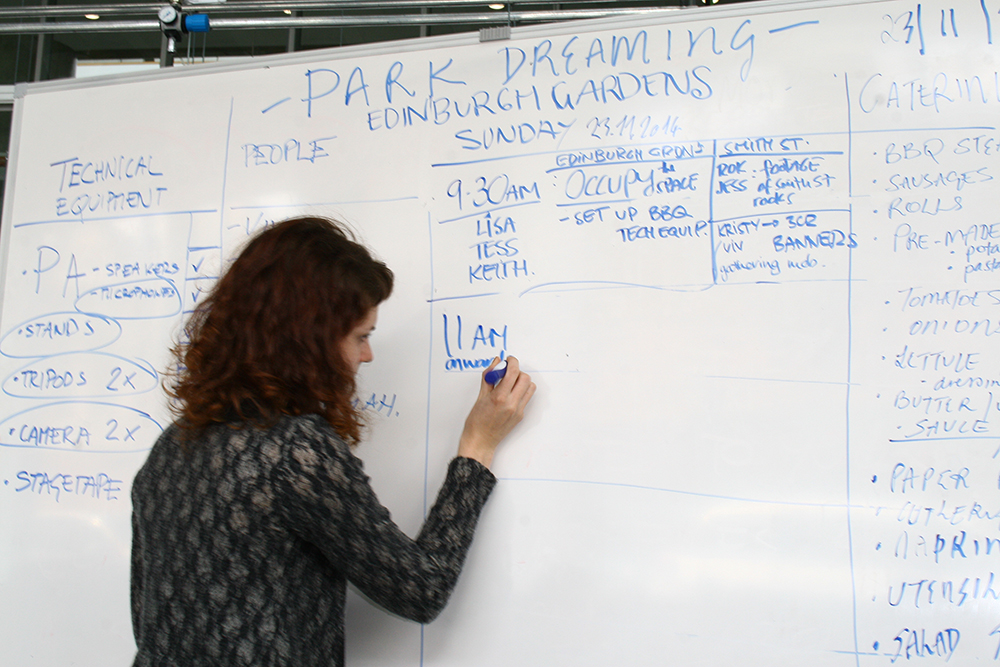 - PARK DREAMING -
EDINBURGH GARDENS
SUNDAY 23.11.2014
23/11/
TECHNICAL
EQUIPMENT
• PA - SPEAKERS ✓
- MICROPHONES ✓
• STANDS
• TRIPODS 2x
• CAMERA 2x
• STAGETAPE
PEOPLE
9.30AM
LISA
TESS
KEITH.
EDINBURGH GRDNS
• OCCUPY the
SPACE
- SET UP BBQ
TECH EQUIP.
SMITH ST.
ROK. footage
JESS of Smith St
rocks
KRISTY → 3CR
/viv BANNERS
gathering mob.
11 AM
onward
CATERIN
• BBQ STEA
• SAUSAGES
• ROLLS
• PRE-MADE
• pota
• past
• TOMATOES
• ONIONS
• LETTUCE
• dressin
• BUTTER/
• SAUCE
• PAPER
CUTLER
• NAPKIN
• UTENSIL
• SALAD